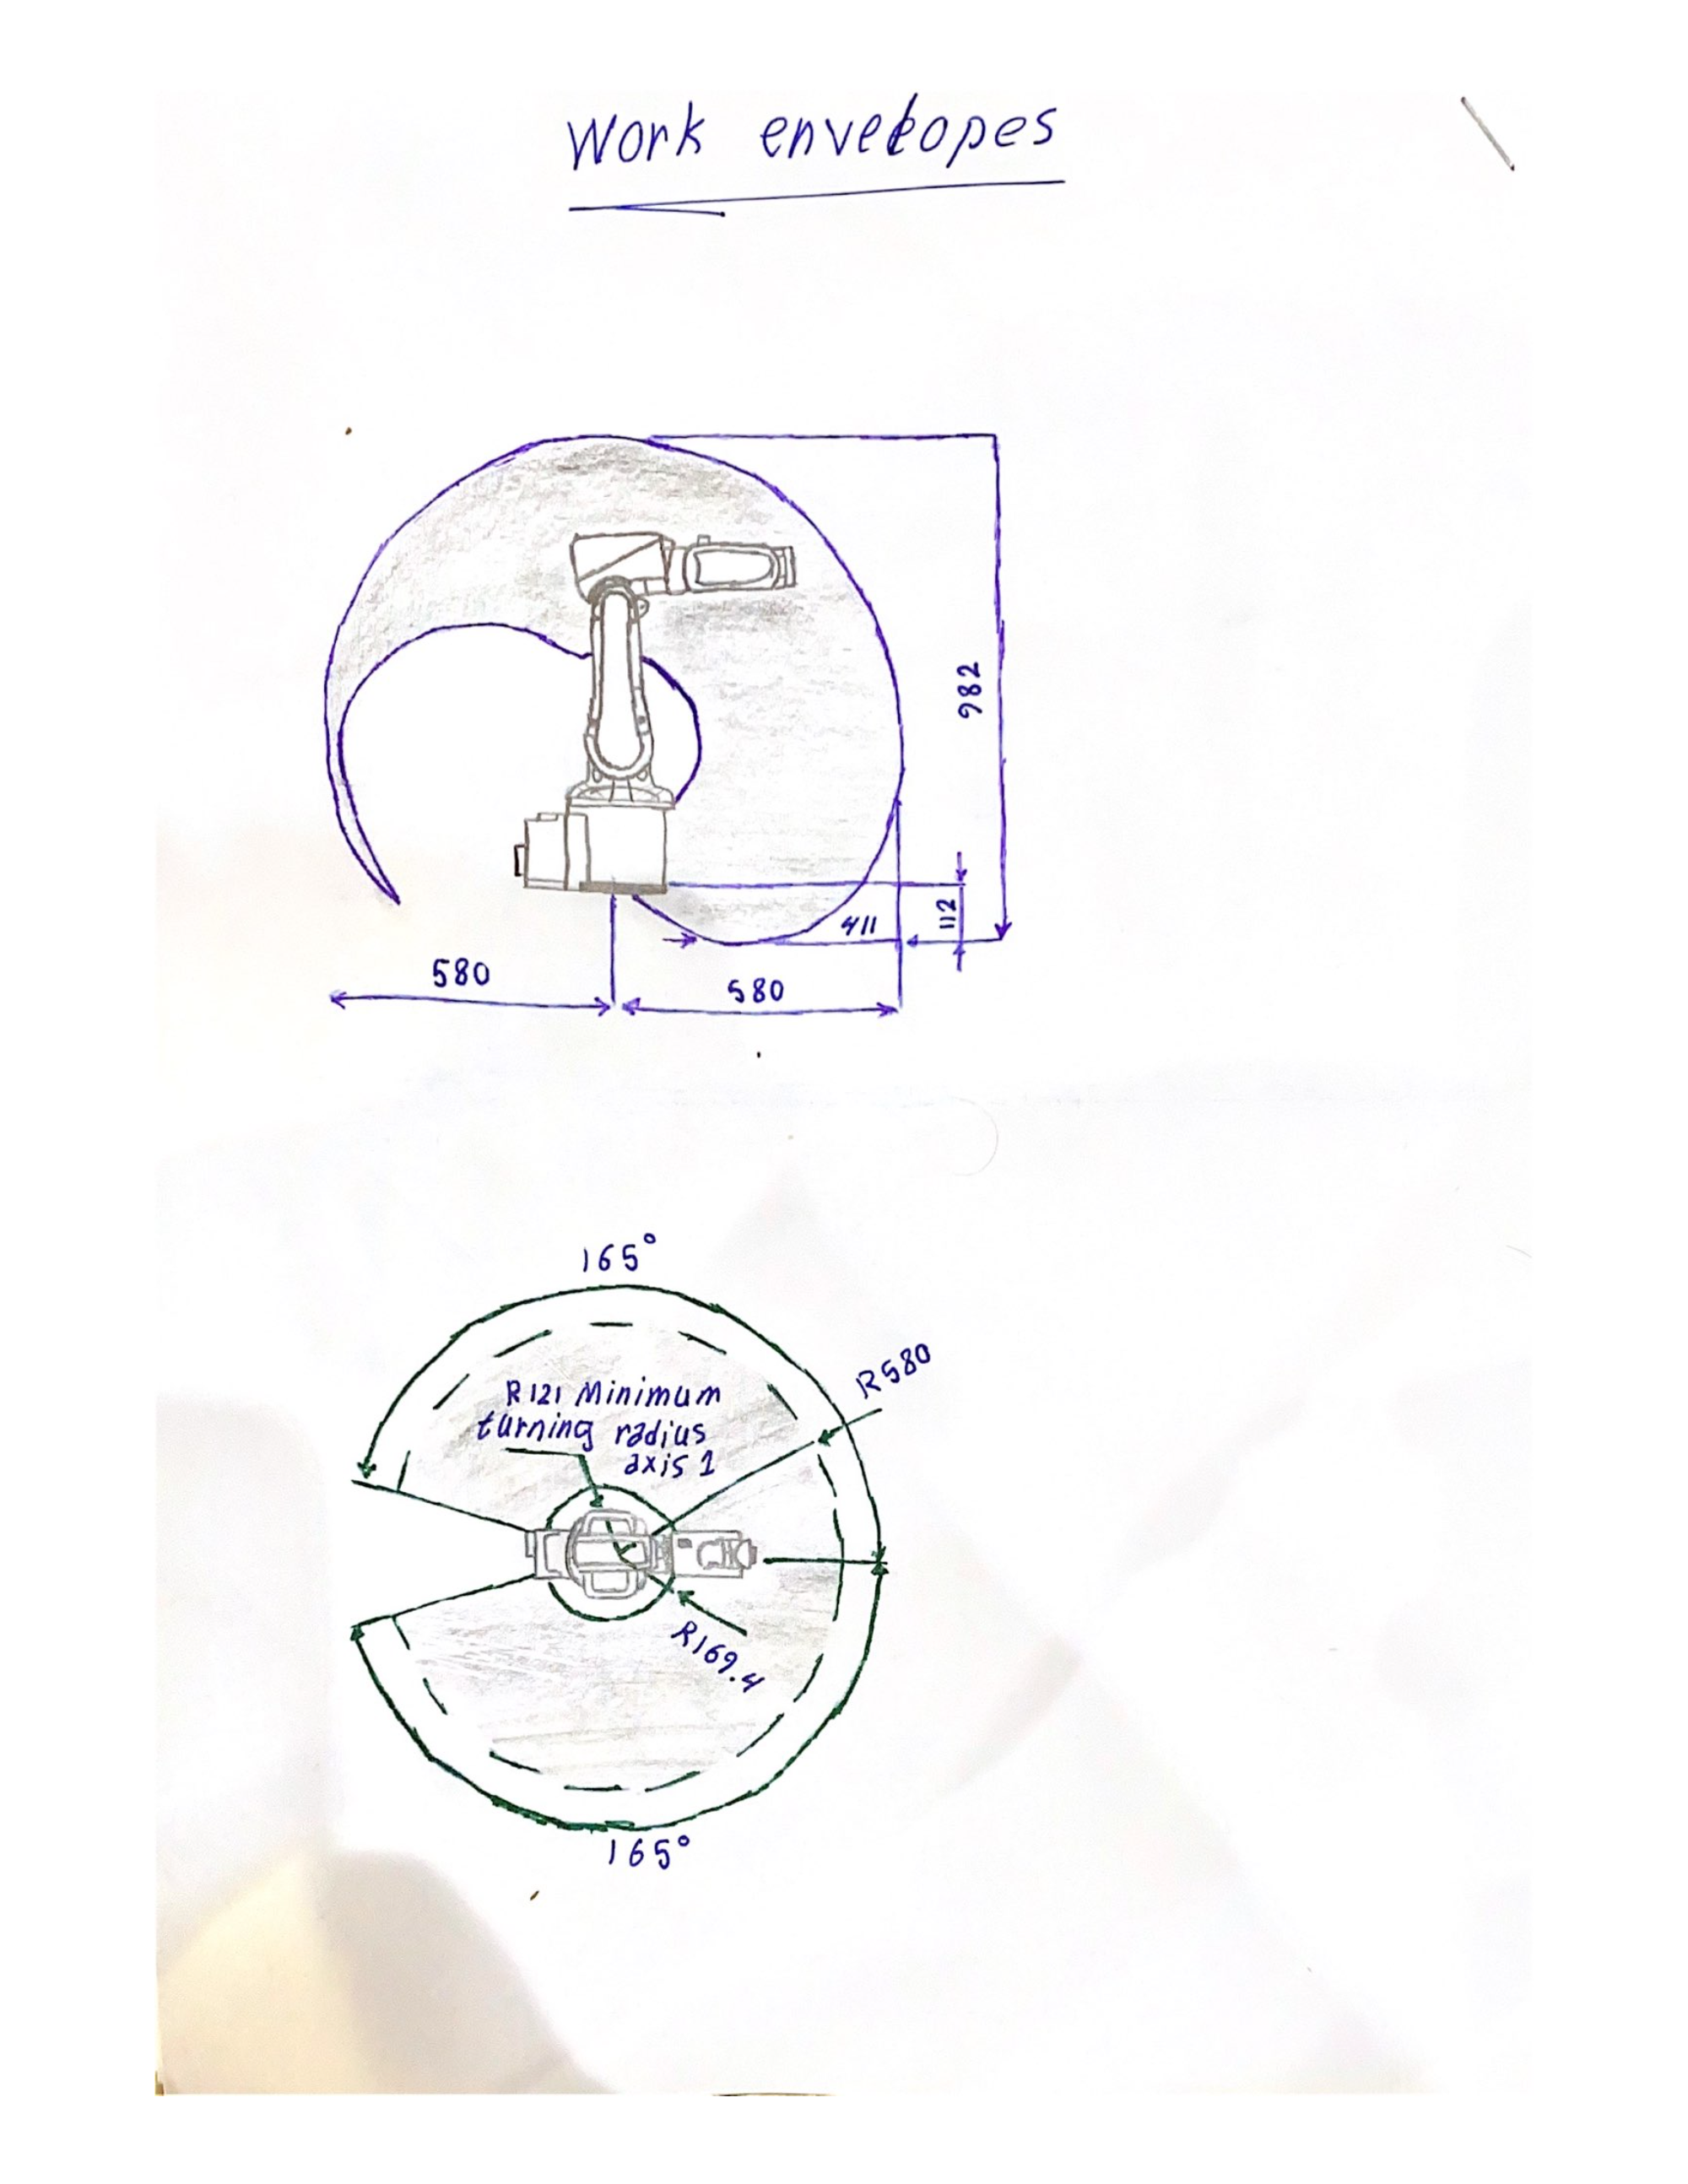 Work envelopes
982
411
112
580
580
165°
R580
R121 Minimum
turning radius
axis 1
R169.4
165°